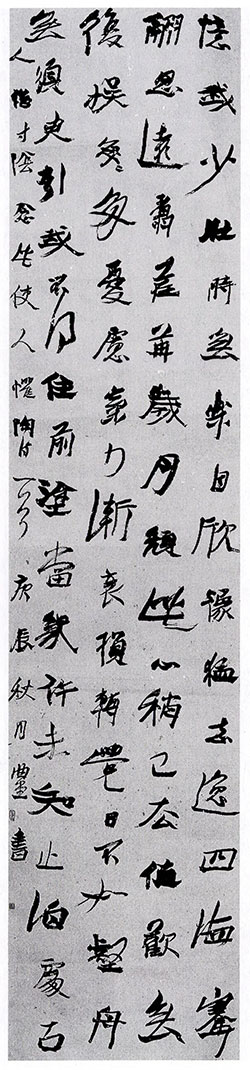 憶我少壯時無樂自欣豫猛志逸四海騫
翮思遠翥荏苒歲月頹此心稍已去值歡無
復娛每〻多憂慮氣力漸衰損轉覺日不如壑舟
無須臾引我不得住前塗當幾許未知止泊處古
人惜寸陰念此使人懼陶詩 庚辰秋月 書